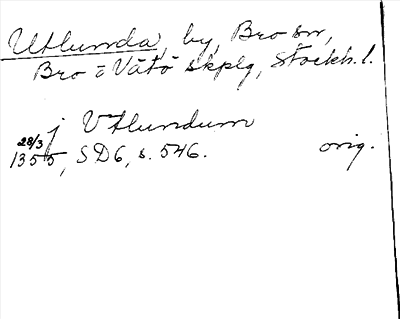 Utlunda, by, Bro sn,
Bro o Vätö skplg, Stockh. l.
j Vtlundum
28/3
1355, SD6, s. 546. orig.